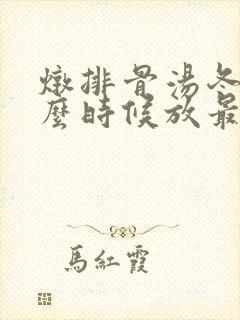 燉排骨湯冬
麼時候放最
馬紅霞